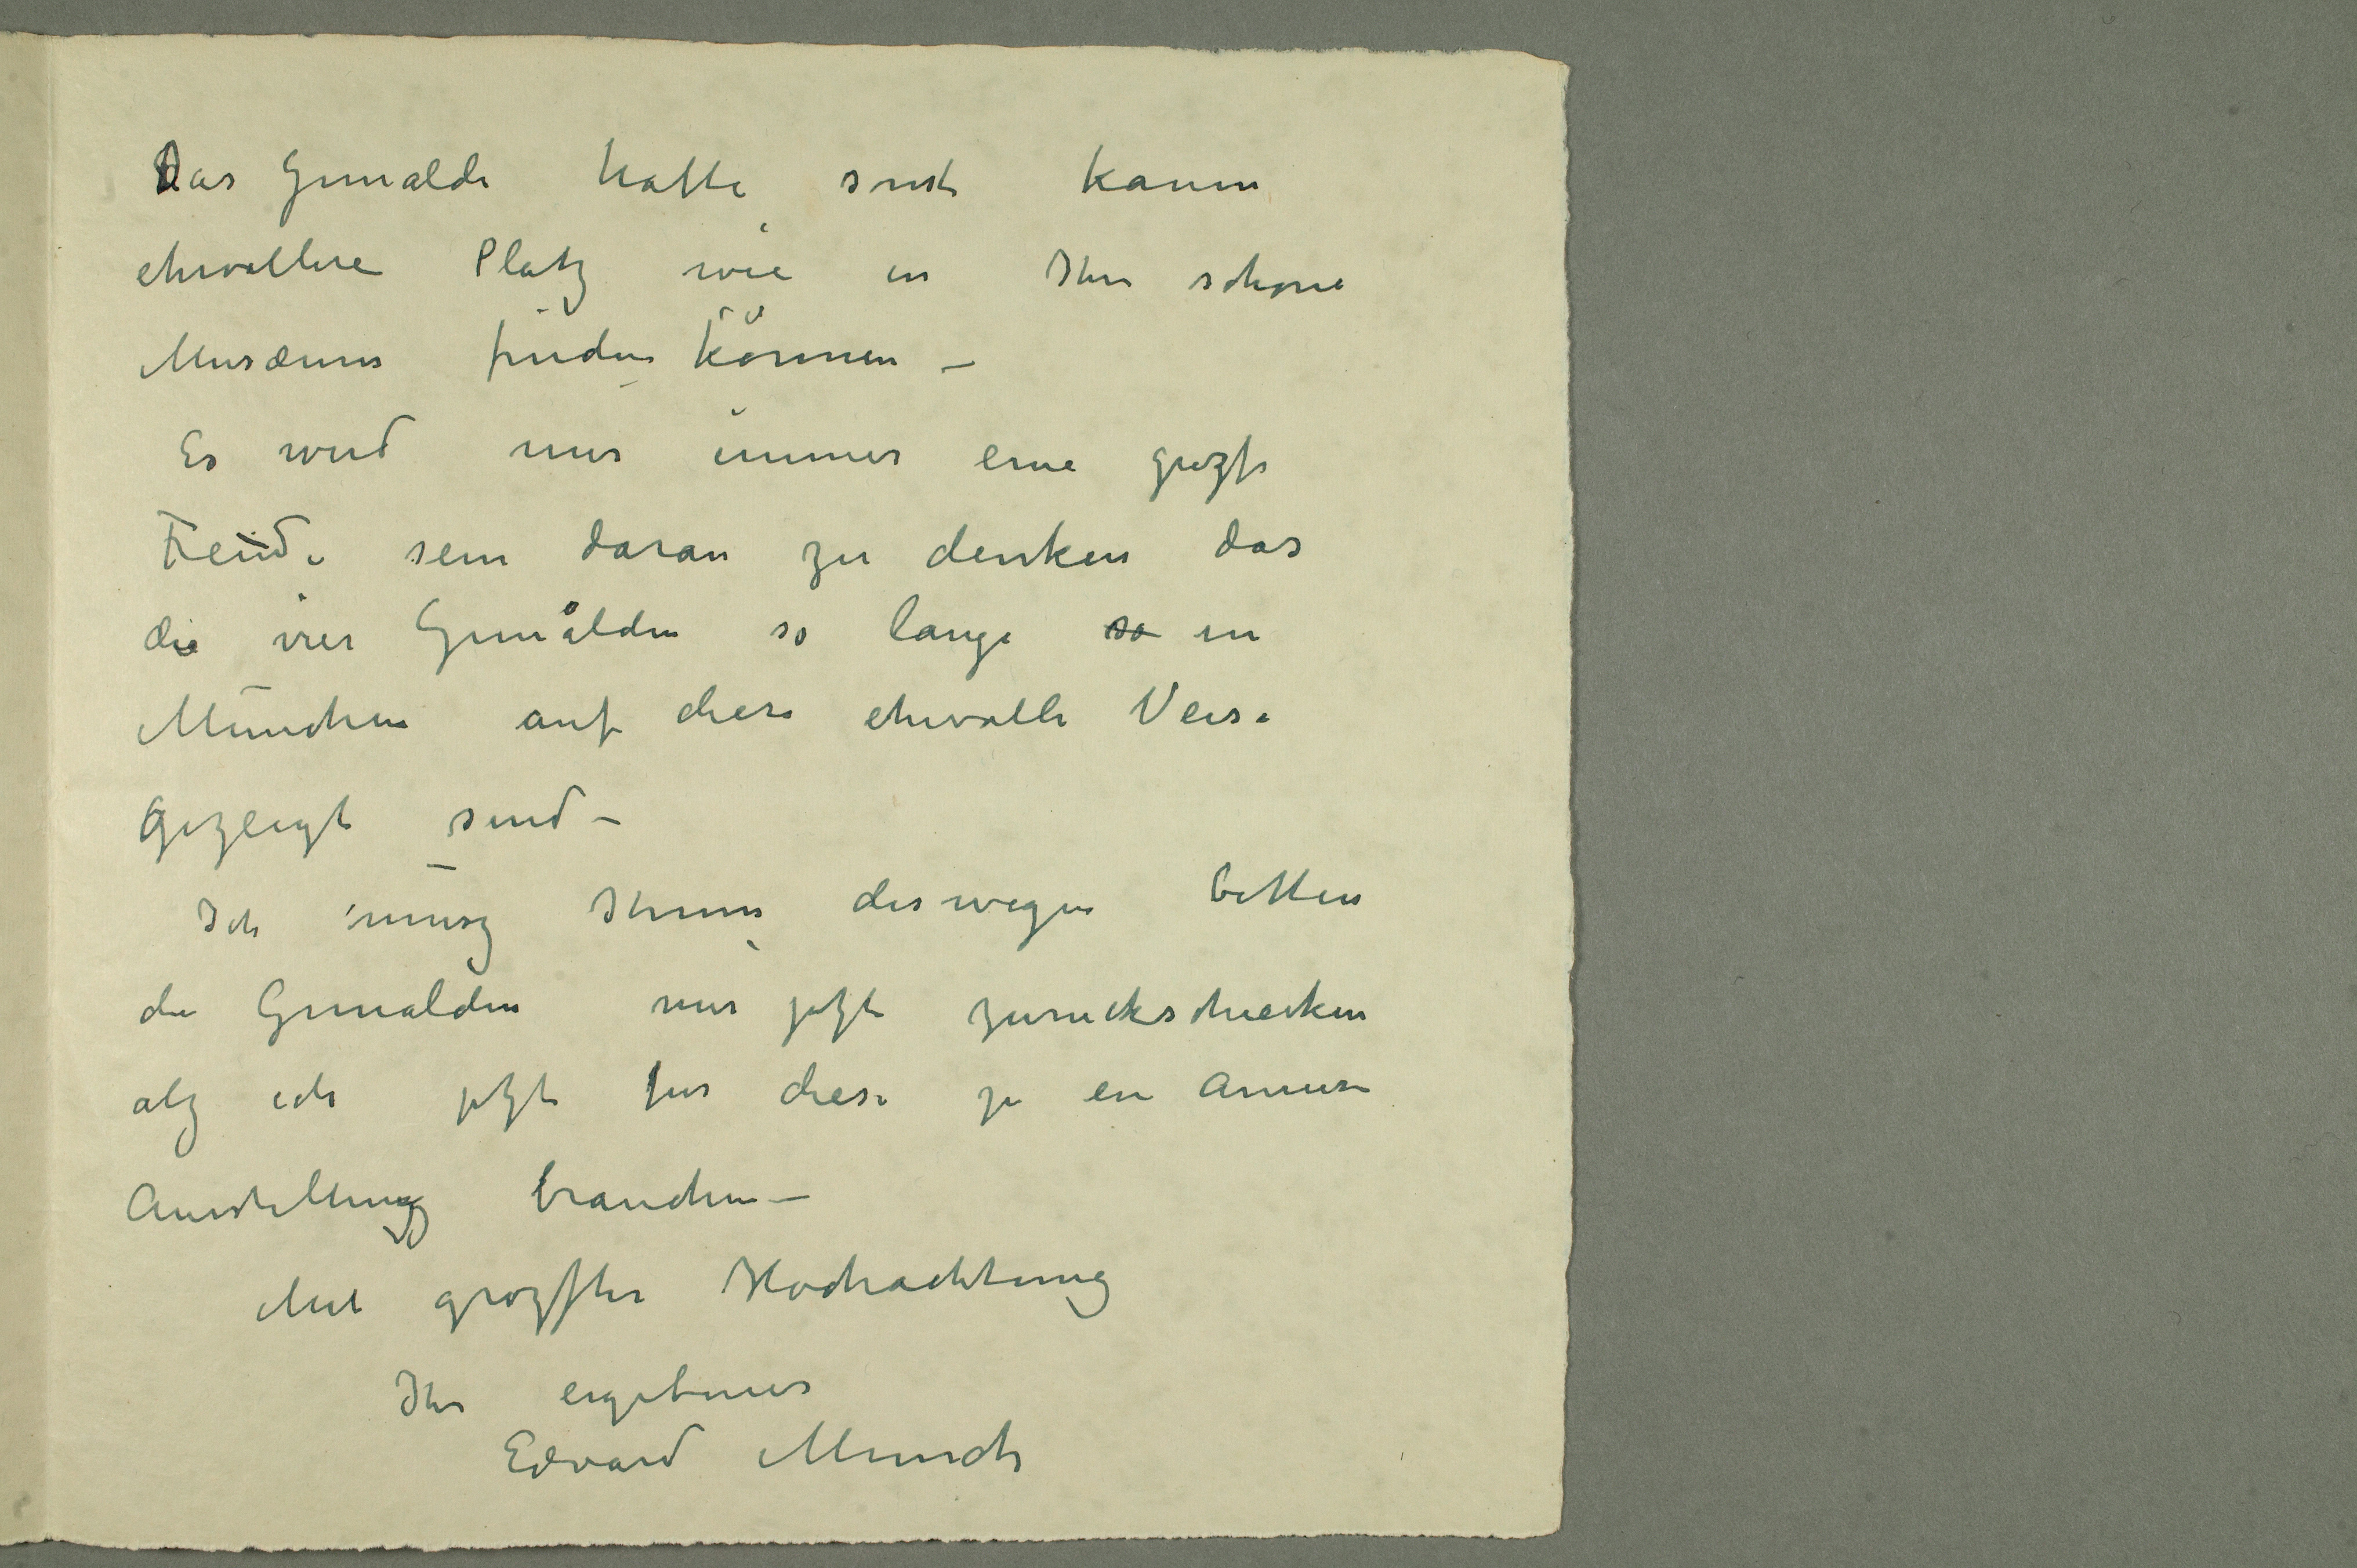 Das Gemalde hatte sonst kaum
ehrvollere Platz wie in Ihre schöne
Musæum finden können –
Es wird mir immer eine grozse
Freude sein daran zu denken das
die vier Gemålden so lange so in
München auf diese ehrvolle Veise
gezeigt sind –
Ich musz Ihnen deswegen bitten
die Gemalden mir jetzt zuruckschicken
alz ich jetzt fur diese zu ein
Ausstellung brauchen –
Mit grozster Hochachtung
Ihr ergebener
Edvard Munch